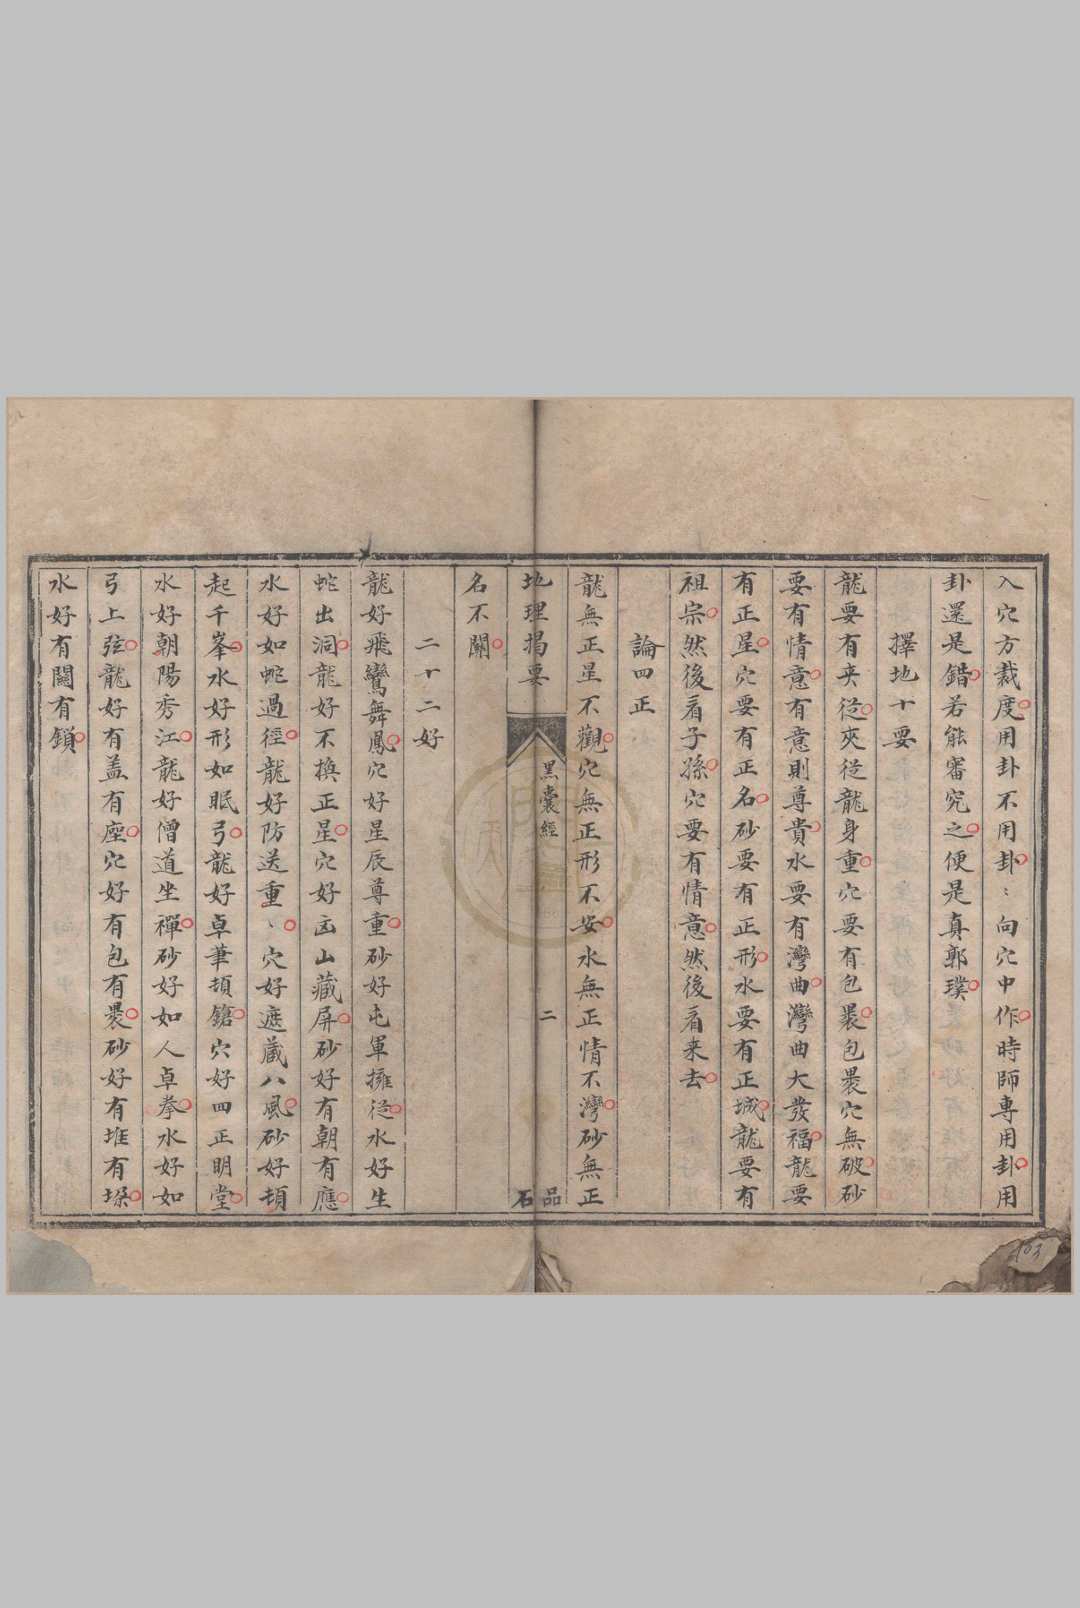 入穴方裁度用卦不用卦〻向穴中作時師專用卦用
卦還是錯若能審究之便是真郭璞
擇地十要
龍要有夾從夾從龍身重穴要有包裹包裹穴無破砂
要有情意有意則尊貴水要有灣曲灣曲大發福龍要
有正星穴要有正名砂要有正形水要有正城龍要有
祖宗然後看子孫穴要有情意然後看來去
論四正
龍無正星不觀穴無正形不安水無正情不灣砂無正
地理揭要
黑囊經
二
石品
名不關
二十二好
龍好飛鸞舞鳳穴好星辰尊重砂好屯軍擁從水好生
蛇出洞龍好不換正星穴好出山藏屏砂好有朝有應
水好如蛇過徑龍好防送重〻穴好遮藏八風砂好頓
起千峯水好形如眠弓龍好卓筆頓鎗穴好四正明堂
水好朝陽秀江龍好僧道坐禪砂好如人卓拳水好如
弓上弦龍好有盖有座穴好有包有裹砂好有堆有垜
水好有關有鎖